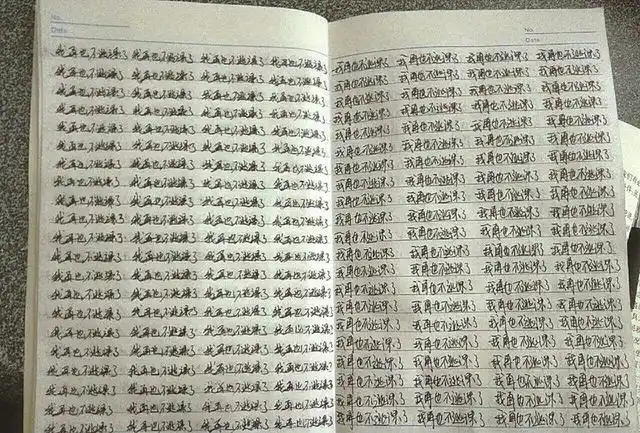 No.
Date
我再也不逃课了 我再也不逃课了 我再也不逃课了 我再也不逃课了
我再也不逃课了 我再也不逃课了 我再也不逃课了 我再也不逃课了
我再也不逃课了 我再也不逃课了 我再也不逃课了 我再也不逃课了
我再也不逃课了 我再也不逃课了 我再也不逃课了 我再也不逃课了
我再也不逃课了 我再也不逃课了 我再也不逃课了 我再也不逃课了
我再也不逃课了 我再也不逃课了 我再也不逃课了 我再也不逃课了
我再也不逃课了 我再也不逃课了 我再也不逃课了 我再也不逃课了
我再也不逃课了 我再也不逃课了 我再也不逃课了 我再也不逃课了
我再也不逃课了 我再也不逃课了 我再也不逃课了 我再也不逃课了
我再也不逃课了 我再也不逃课了 我再也不逃课了 我再也不逃课了
我再也不逃课了 我再也不逃课了 我再也不逃课了 我再也不逃课了
我再也不逃课了 我再也不逃课了 我再也不逃课了 我再也不逃课了
我再也不逃课了 我再也不逃课了 我再也不逃课了 我再也不逃课了
我再也不逃课了 我再也不逃课了 我再也不逃课了 我再也不逃课了
我再也不逃课了 我再也不逃课了 我再也不逃课了 我再也不逃课了
我再也不逃课了 我再也不逃课了 我再也不逃课了 我再也不逃课了
我再也不逃课了 我再也不逃课了 我再也不逃课了 我再也不逃课了
我再也不逃课了 我再也不逃课了 我再也不逃课了 我再也不逃课了
我再也不逃课了 我再也不逃课了 我再也不逃课了 我再也不逃课了
我再也不逃课了 我再也不逃课了 我再也不逃课了 我再也不逃课了
我再也不逃课了 我再也不逃课了 我再也不逃课了 我再也不逃课了
No.
Date
我再也不逃课了 我再也不逃课了 我再也不逃课了 我再也不逃课了
我再也不逃课了 我再也不逃课了 我再也不逃课了 我再也不逃课了
我再也不逃课了 我再也不逃课了 我再也不逃课了 我再也不逃课了
我再也不逃课了 我再也不逃课了 我再也不逃课了 我再也不逃课了
我再也不逃课了 我再也不逃课了 我再也不逃课了 我再也不逃课了
我再也不逃课了 我再也不逃课了 我再也不逃课了 我再也不逃课了
我再也不逃课了 我再也不逃课了 我再也不逃课了 我再也不逃课了
我再也不逃课了 我再也不逃课了 我再也不逃课了 我再也不逃课了
我再也不逃课了 我再也不逃课了 我再也不逃课了 我再也不逃课了
我再也不逃课了 我再也不逃课了 我再也不逃课了 我再也不逃课了
我再也不逃课了 我再也不逃课了 我再也不逃课了 我再也不逃课了
我再也不逃课了 我再也不逃课了 我再也不逃课了 我再也不逃课了
我再也不逃课了 我再也不逃课了 我再也不逃课了 我再也不逃课了
我再也不逃课了 我再也不逃课了 我再也不逃课了 我再也不逃课了
我再也不逃课了 我再也不逃课了 我再也不逃课了 我再也不逃课了
我再也不逃课了 我再也不逃课了 我再也不逃课了 我再也不逃课了
我再也不逃课了 我再也不逃课了 我再也不逃课了 我再也不逃课了
我再也不逃课了 我再也不逃课了 我再也不逃课了 我再也不逃课了
我再也不逃课了 我再也不逃课了 我再也不逃课了 我再也不逃课了
我再也不逃课了 我再也不逃课了 我再也不逃课了 我再也不逃课了
我再也不逃课了 我再也不逃课了 我再也不逃课了 我再也不逃课了